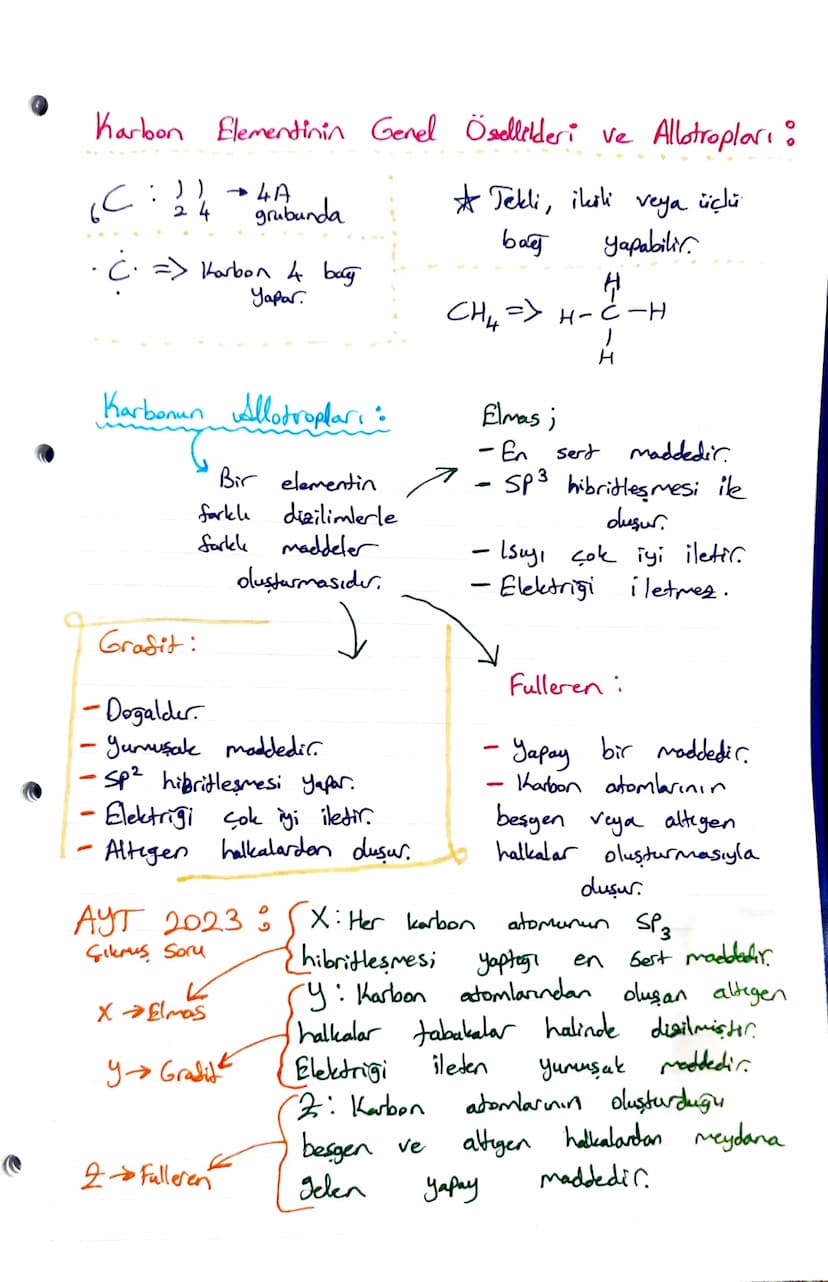 Karbon Elementinin Genel Özellikleri ve Allotropları:
₆C: )) → 4A
2 4 grubunda
·C· => Karbon 4 bağ
yapar.
★ Tekli, ikili veya üçlü
bağ yapabilir.
H
CH₄ => H-C-H
H
Karbonun Allotropları:
Bir elementin
farklı dizilimlerle
farklı maddeler
oluşturmasıdır.
Elmas;
- En sert maddedir.
- SP³ hibritleşmesi ile
oluşur.
- Isıyı çok iyi iletir.
- Elektriği iletmez.
Grafit:
- Doğaldır.
- Yumuşak maddedir.
- SP² hibritleşmesi yapar.
- Elektriği çok iyi iletir.
- Altıgen halkalardan oluşur.
Fulleren:
- Yapay bir maddedir.
- Karbon atomlarının
beşgen veya altıgen
halkalar oluşturmasıyla
oluşur.
AYT 2023:
Çıkmış Soru
X: Her karbon atomunun SP₃
hibritleşmesi yaptığı en sert maddedir.
X → Elmas
Y: Karbon atomlarından oluşan altıgen
halkalar tabakalar halinde dizilmiştir.
Elektriği ileten yumuşak maddedir.
Y → Grafit
Z: Karbon atomlarının oluşturduğu
beşgen ve altıgen halkalardan meydana
gelen yapay maddedir.
Z → Fulleren